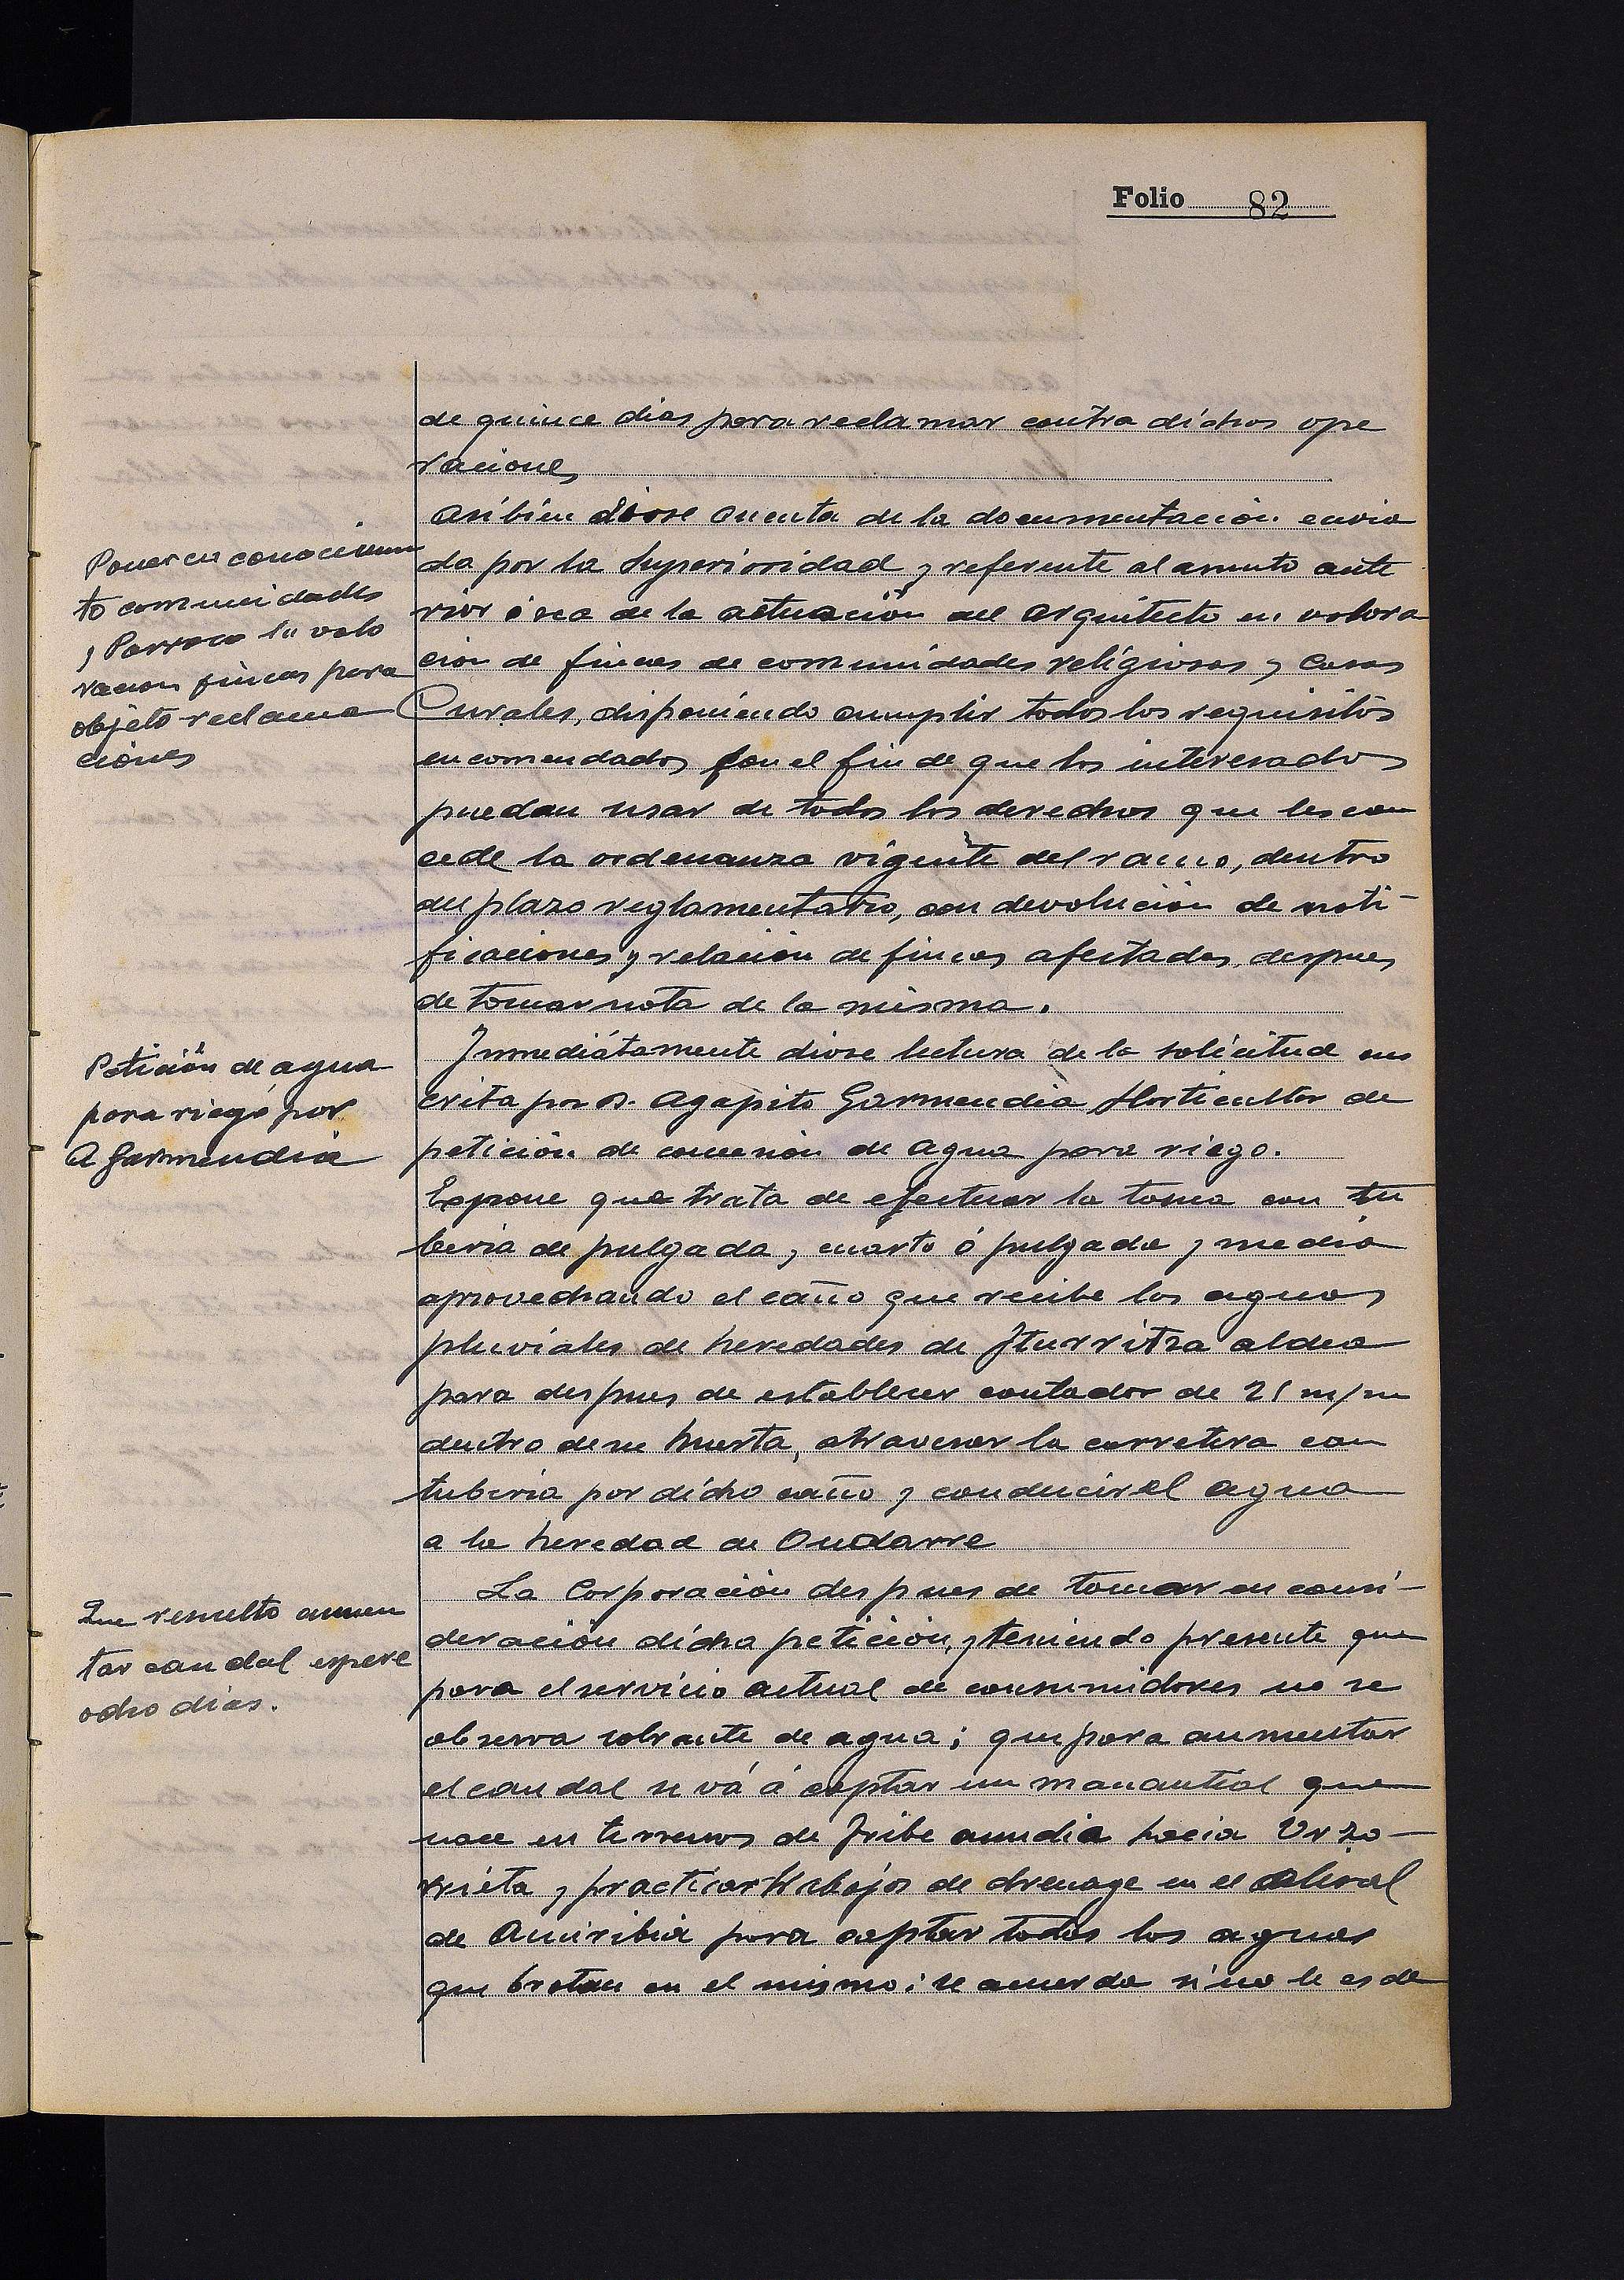 Folio 82
de quince dias para reclamar contra dichas ope
raciones
Asíbien dióse cuenta de la documentación envia
da por la Superioridad y referente al asunto ante
rior ó sea de la actuación del arquitecto en valora
ción de fincas de comunidades religiosas y Casas
Curales, disponiendo cumplir todos los requisitos
encomendados con el fin de que los interesados
puedan usar de todos los derechos que les con
cede la ordenanza vigente del ramo, dentro
del plazo reglamentario, con devolución de noti-
ficaciones y relación de fincas afectadas, despues
de tomar nota de la misma.
Inmediátamente dióse lectura de la solicitud sus
crita por D. Agapito Garmendia Horticultor de
petición de concesión de agua para riego.
Expone que trata de efectuar la toma con tu
beria de pulgada y cuarto ó pulgada y media
aprovechando el caño que recibe las aguas
pluviales de heredades de Iturritza aldea
para despues de establecer contador de 25 m/m
dentro de su huerta, atravesar la carretera con
tuberia por dicho caño y conducir el agua
a la heredad de Ondarre
La Corporación despues de tomar en consi-
deración dicha petición, y teniendo presente que
para el servicio actual de consumidores no se
observa sobrante de agua; que para aumentar
el caudal se vá á captar un manantial que
nace en terrenos de Iribe aundia hacia Urzo-
rrieta y practicar trabajos de drenage en el
de Amiribia para captar todas las aguas
que brotan en el mismo; se acuerda si no le es de
Poner en conocimien
to comunidades
y Parroco la valo
racion fincas para
objeto reclama
ciones
Petición de agua
para riego por
A Garmendia
Que resuelto aumen
tar caudal espere
ocho dias.